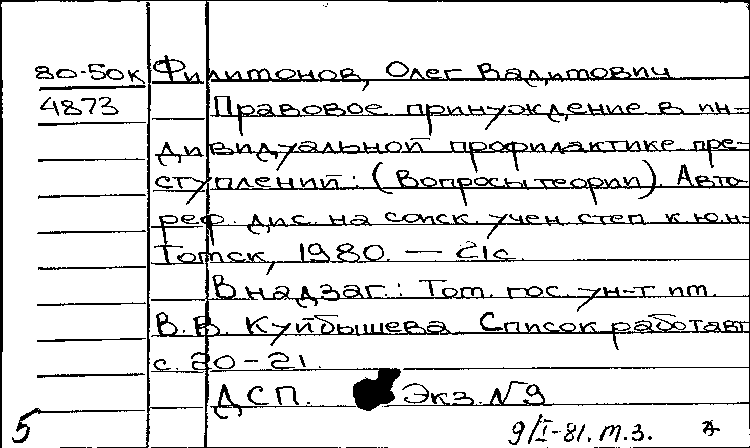 80-50к Филимонов, Олег Вадимович
4873 Правовое принуждение в ин-
дивидуальной профилактике пре-
ступлений: (Вопросы теории) Авто-
реф. дис. на соиск. учен. степ. к.ю.н-
Томск, 1980. — 21с.
В надзаг.: Том. гос. ун-т им.
В.В. Куйбышева. Список работ авт
с. 20-21.
ДСП. Экз. №9
5 9/I-81. т.з.